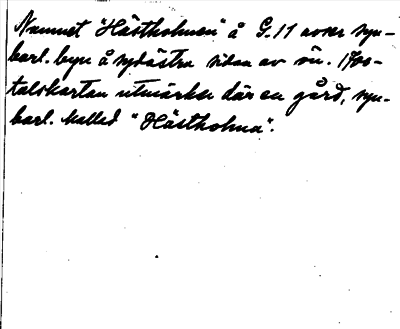 Namnet "Hästholmen" å G.11 avser syn-
barl. byn å sydöstra sidan av ön. 1700-
talskartan utmärker där en gård, syn-
barl. kallad "Hästholma".